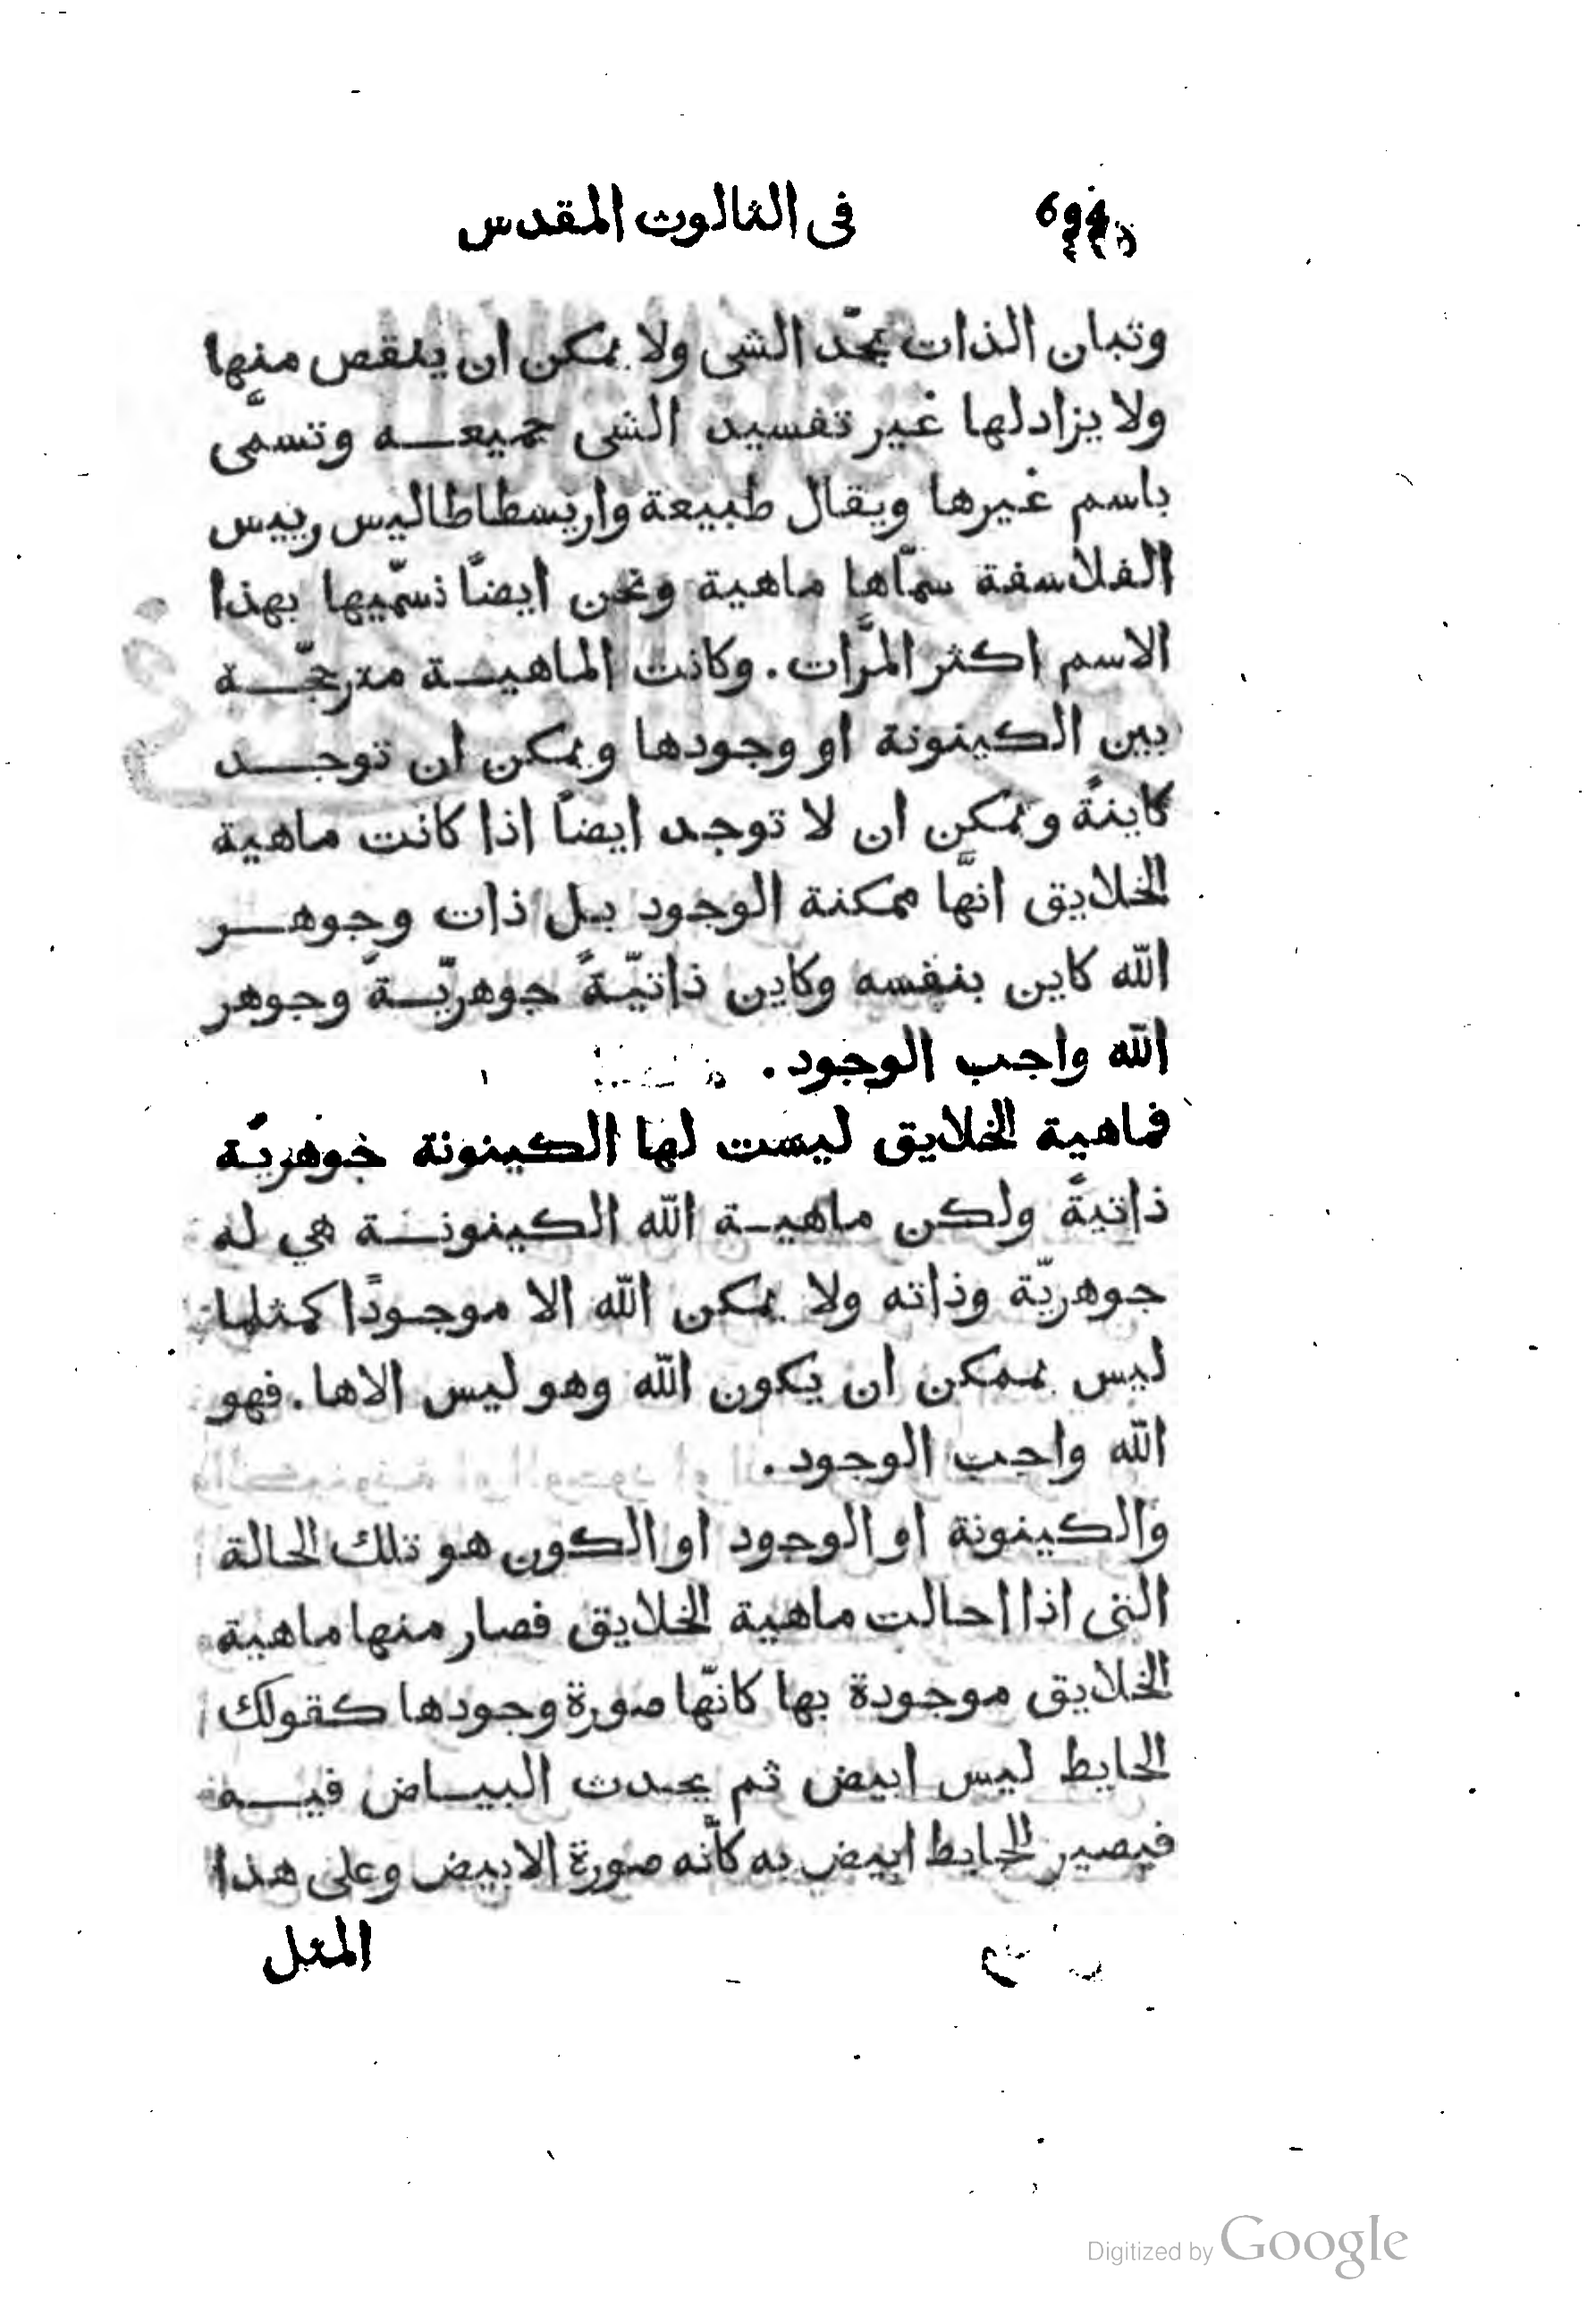 694 فى الثالوث المقدس
وتبان الذات بحّد الشى ولا يمكن ان ينقص منها
ولا يزاد لها غير تفسيد الشى جميعه وتسمَّى
باسم غيرها ويقال طبيعة واريسطاطاليس رييس
الفلاسفة سمّاها ماهية ونحن ايضاً نسّميها بهذا
الاسم اكثر المرَّات. وكانت الماهية مترجّحة
بين الكينونة او وجودها ويمكن ان توجد
كاينةً ويمكن ان لا توجد ايضاً اذا كانت ماهية
الخلايق انَّها ممكنة الوجود بل ذات وجوهر
الله كاين بنفسه وكاين ذاتيّةً جوهريّةً وجوهر
الله واجب الوجود.
فماهية الخلايق ليست لها الكينونة جوهريّة
ذاتيةً ولكن ماهية الله الكينونة هى له
جوهريّة وذاته ولا يمكن الله الا موجودًا كمثلما
ليس بممكن ان يكون الله وهو ليس الاها. فهو
الله واجب الوجود.
والكينونة او الوجود او الكون هو تلك الحالة
التى اذا احالت ماهية الخلايق فصار منها ماهية
الخلايق موجودة بها كانّها صورة وجودها كقولك
الحايط ليس ابيض ثم يحدث البياض فيه
فيصير الحايط ابيض به كأنه صورة الابيض وعلى هذا
المثل
Digitized by Google